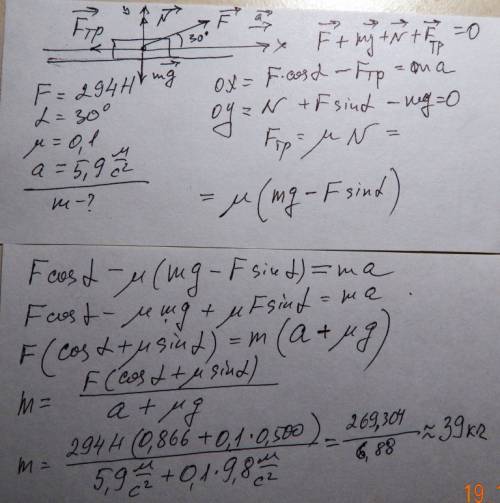 y N⃗ F⃗ a⃗
F⃗тр 30° x
mg⃗
F⃗ + mg⃗ + N⃗ + F⃗тр = 0
F = 294Н
α = 30°
μ = 0,1
a = 5,9 м/с²
m - ?
ox = F·cosα - Fтр = ma
oy = N + Fsinα - mg = 0
Fтр = μN =
= μ(mg - Fsinα)
Fcosα - μ(mg - Fsinα) = ma
Fcosα - μmg + μFsinα = ma
F(cosα + μsinα) = m(a + μg)
m = F(cosα + μsinα) / a + μg
m = 294Н(0,866 + 0,1·0,500) / 5,9 м/с² + 0,1·9,8 м/с² = 269,304 / 6,88 ≈ 39кг
19